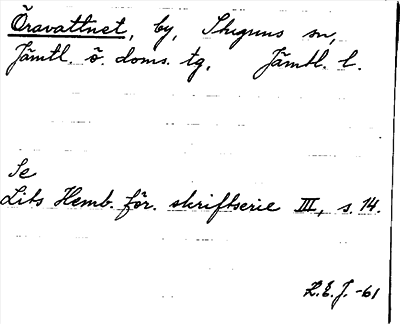 Öravattnet, by, Stuguns sn,
Jämtl. ö. doms. tg, Jämtl. l.
Se
Lits Hemb. för. skriftserie III, s. 14.
L.E.J. -61